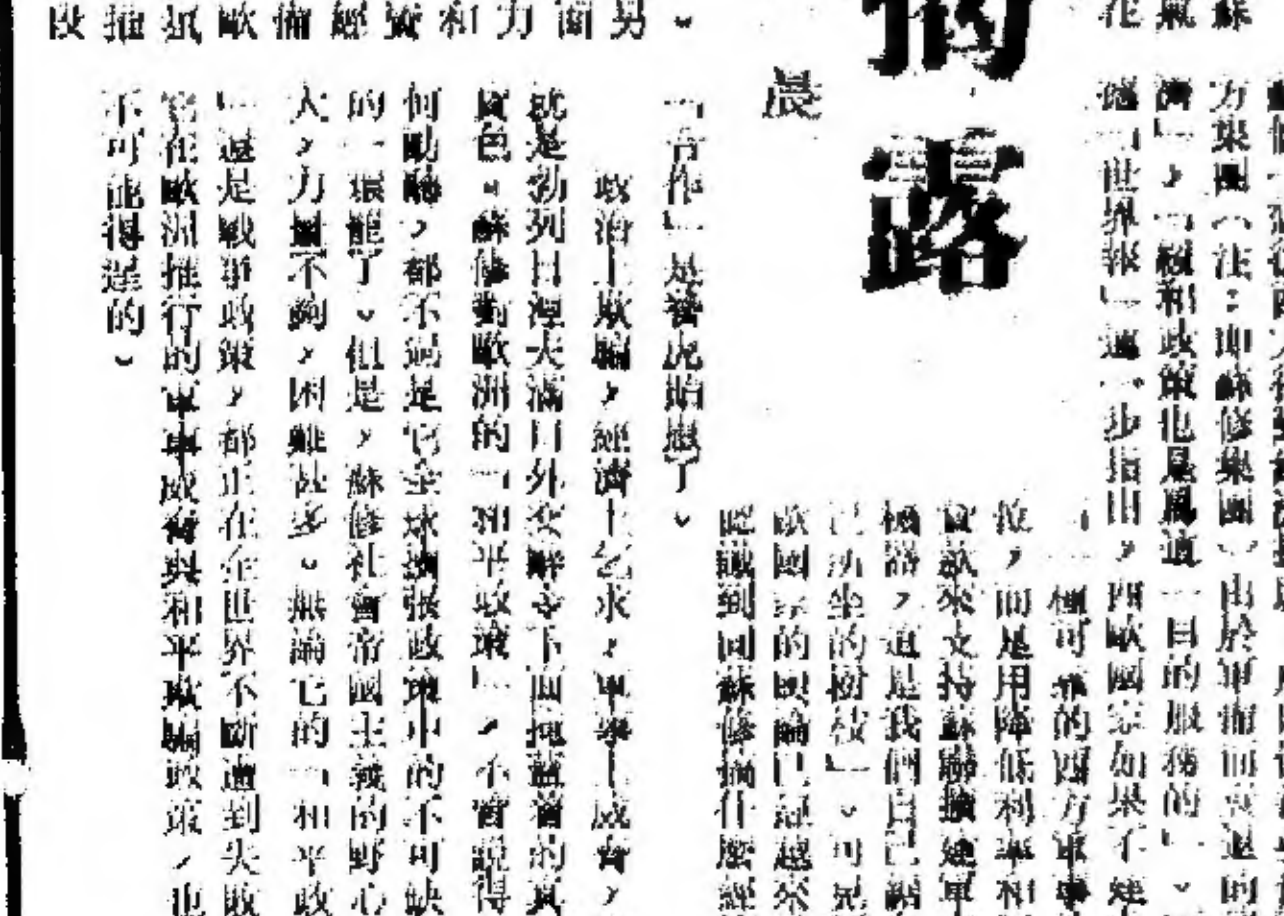 蘇
氣
花
方集團（注：即蘇修集團）由於軍備而衰退的
濟」，「緩和政策也是爲這一目的服務的」。
「世界報」進一步指出，西歐國家如果不
一種可靠的西方軍事
位，而是用降低利率和
貸款來支持蘇聯擴建軍
機器，這是我們自己鋸
己所坐的樹枝」。可見
歐國家的輿論已經越來
認識到同蘇修搞什麼經
露
晨
。另面力和資經備歐氛推段
「合作」是養虎貽患了。
政治上欺騙，經濟上乞求，軍事上威脅，
就是勃列日涅夫滿口外交辭令下面掩蓋着的真
實色。蘇修對歐洲的「和平政策」，不管說得
何動聽，都不過是它全球擴張政策中的不可缺
的一環罷了。但是，蘇修社會帝國主義的野心
大，力量不夠，困難甚多。無論它的「和平政
」還是戰爭政策，都正在全世界不斷遭到失敗
它在歐洲推行的軍事威脅與和平欺騙政策，也
不可能得逞的。